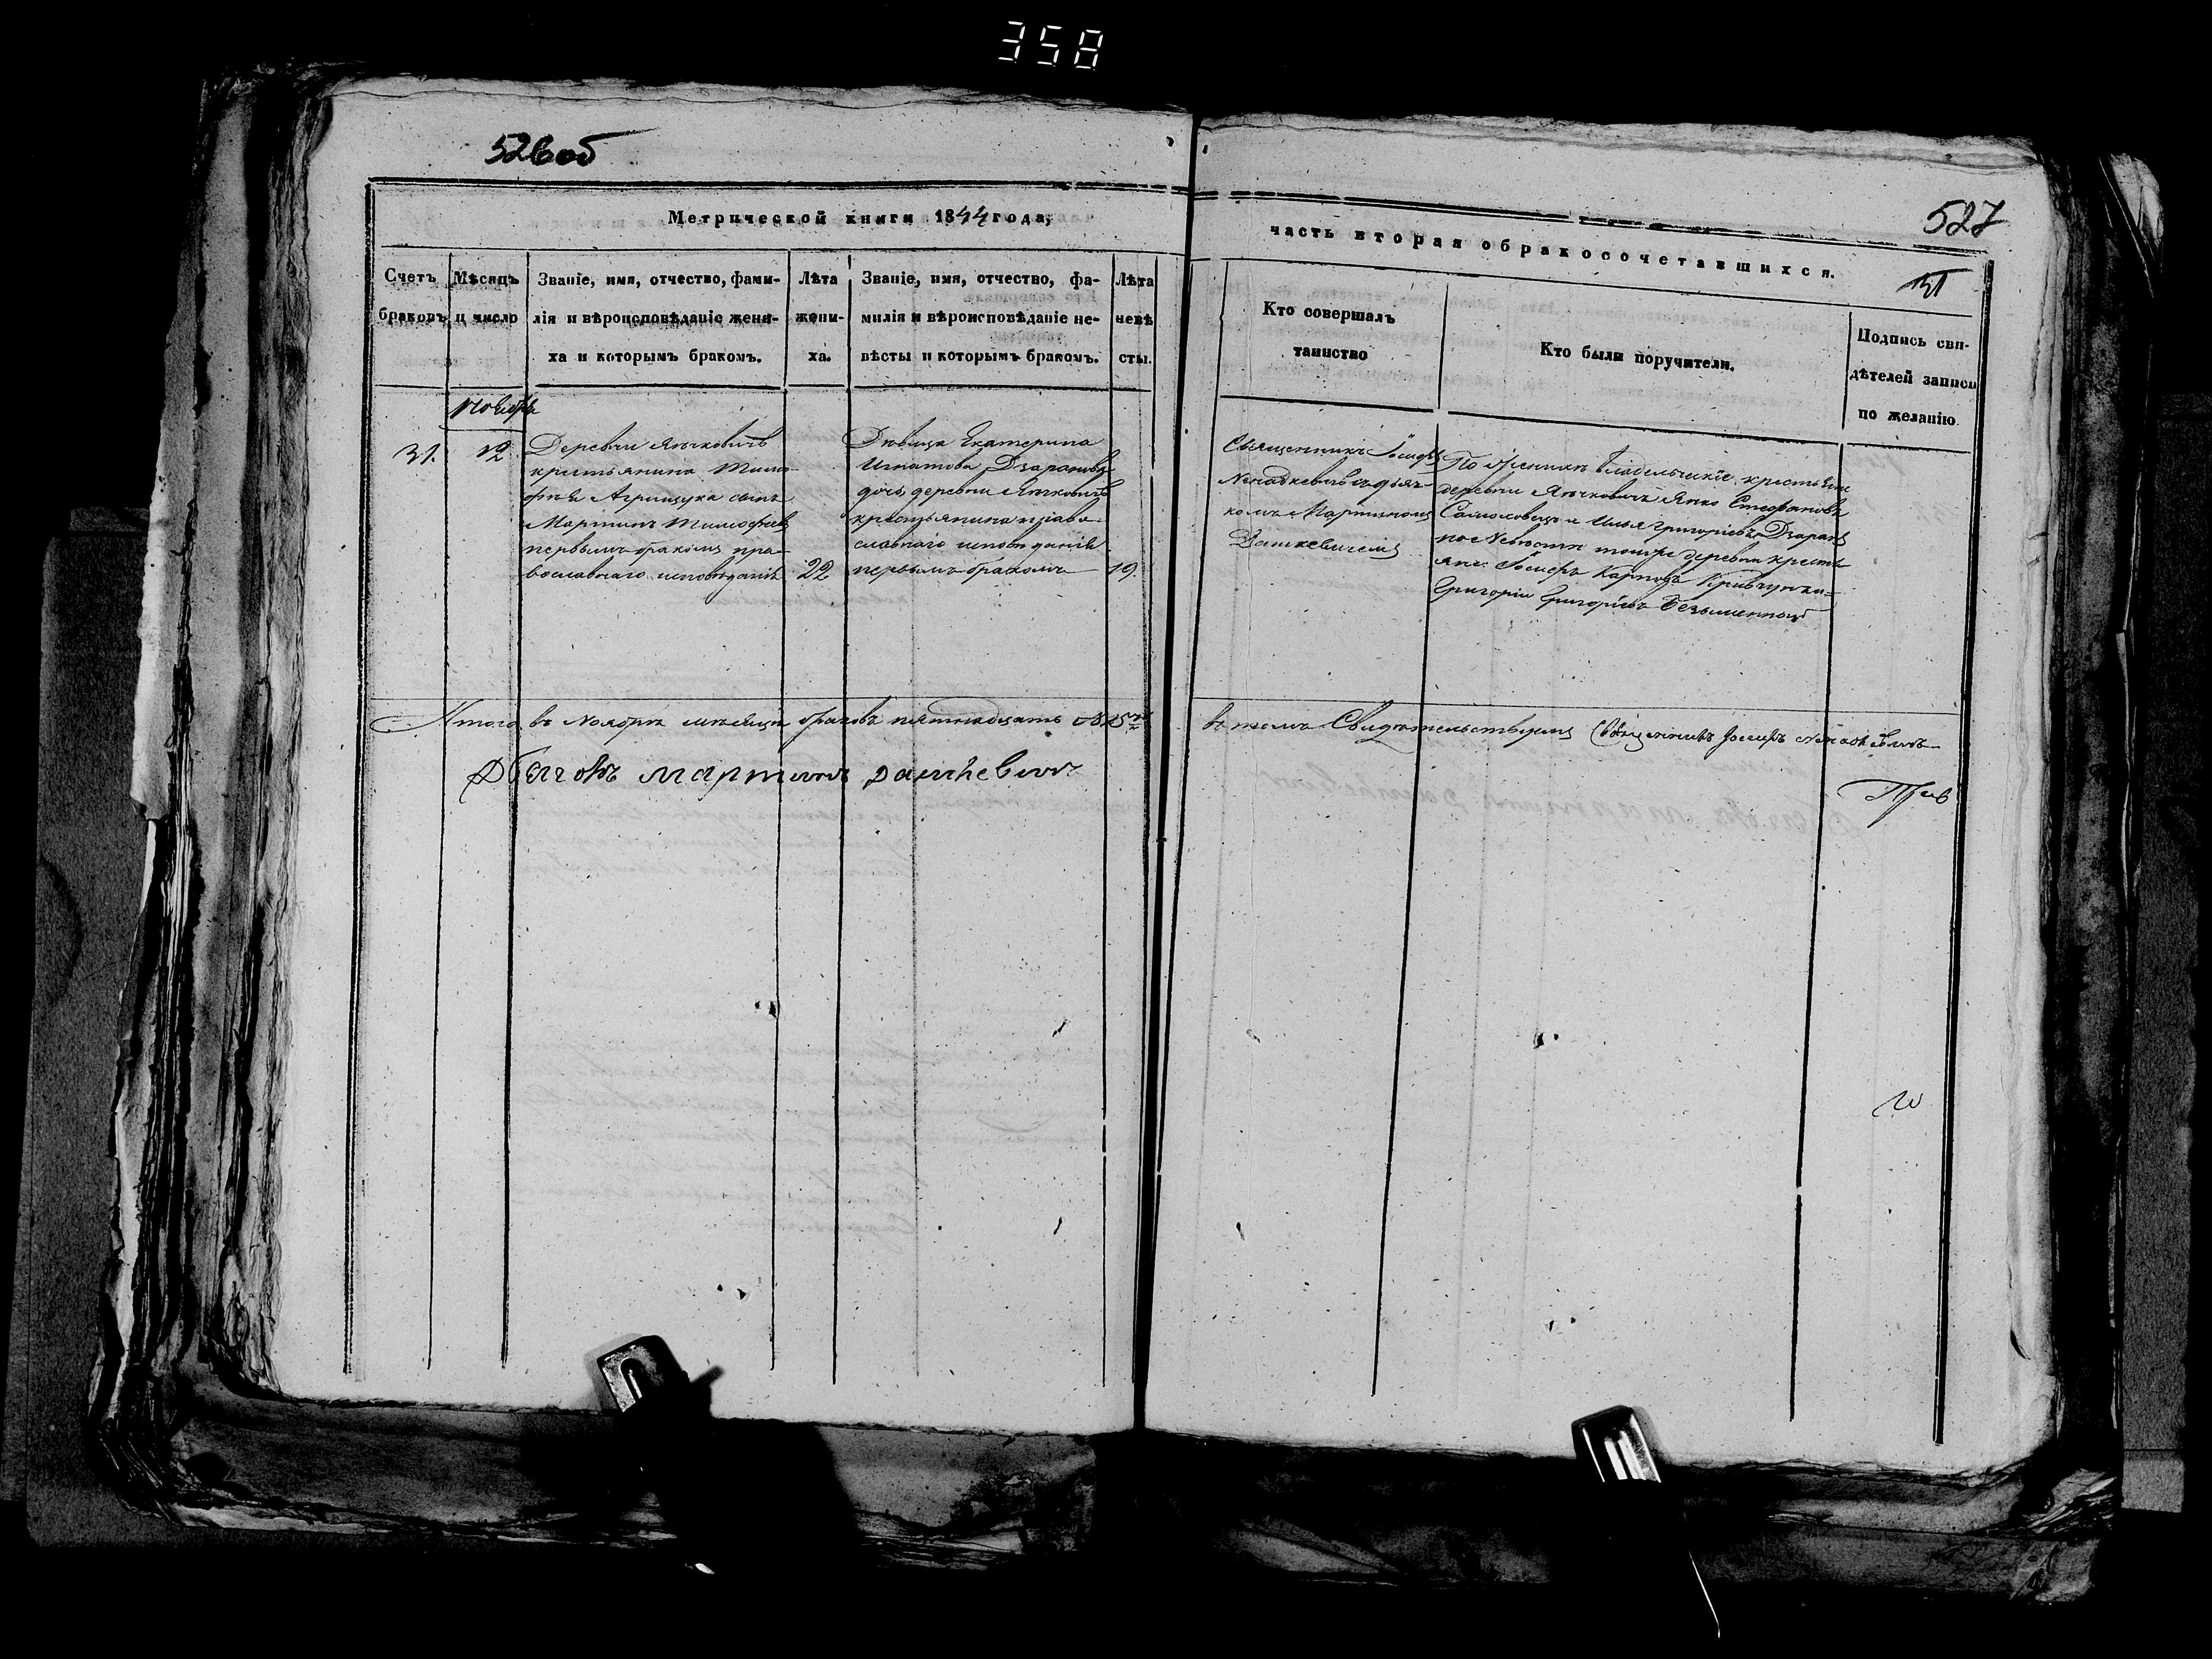 358
526об
527
Метрической книги 1844 года,
часть вторая о бракосочетавшихся.
Счетъ браковъ
Мѣсяцъ и число
Званіе, имя, отчество, фами-
лія и вѣроисповѣданіе жени-
ха и которымъ бракомъ.
Лѣта
жени-
ха.
Званіе, имя, отчество, фа-
милія и вѣроисповѣданіе не-
вѣсты и которымъ бракомъ.
Лѣта
невѣ
сты.
Кто совершалъ
таинство
Кто были поручители.
Подпись сви-
дѣтелей записи
по желанію.
Ноябрь
31.
12
Деревни Ячковичъ
крестьянина Тимо-
фѣя сынъ
Мартинъ Тимофѣевъ
первымъ бракомъ пра-
вославнаго исповѣданія
22
Дѣвица Екатерина
Игнатова
дочь деревни Ячковичъ
крестьянина право-
славнаго исповѣданія
первымъ бракомъ
19.
Священникъ Іосифъ
Ненадкевичъ съ дьяч-
комъ Мартиномъ
Дашкевичемъ
По женихѣ владельческіе крестьяне
деревни Ячковичъ Янко Стефановъ
и Илья Григоріевъ
по невѣстѣ тойже деревни кресть-
яне Іосифъ Карповъ
Григорій Григорьевъ Безыменный
Итого въ Ноябрѣ мѣсяцѣ браковъ пятнадцать
въ томъ Свидѣтельствуемъ Священникъ Іосифъ Ненадкевичъ
Дьячокъ Мартинъ Дашкевичъ